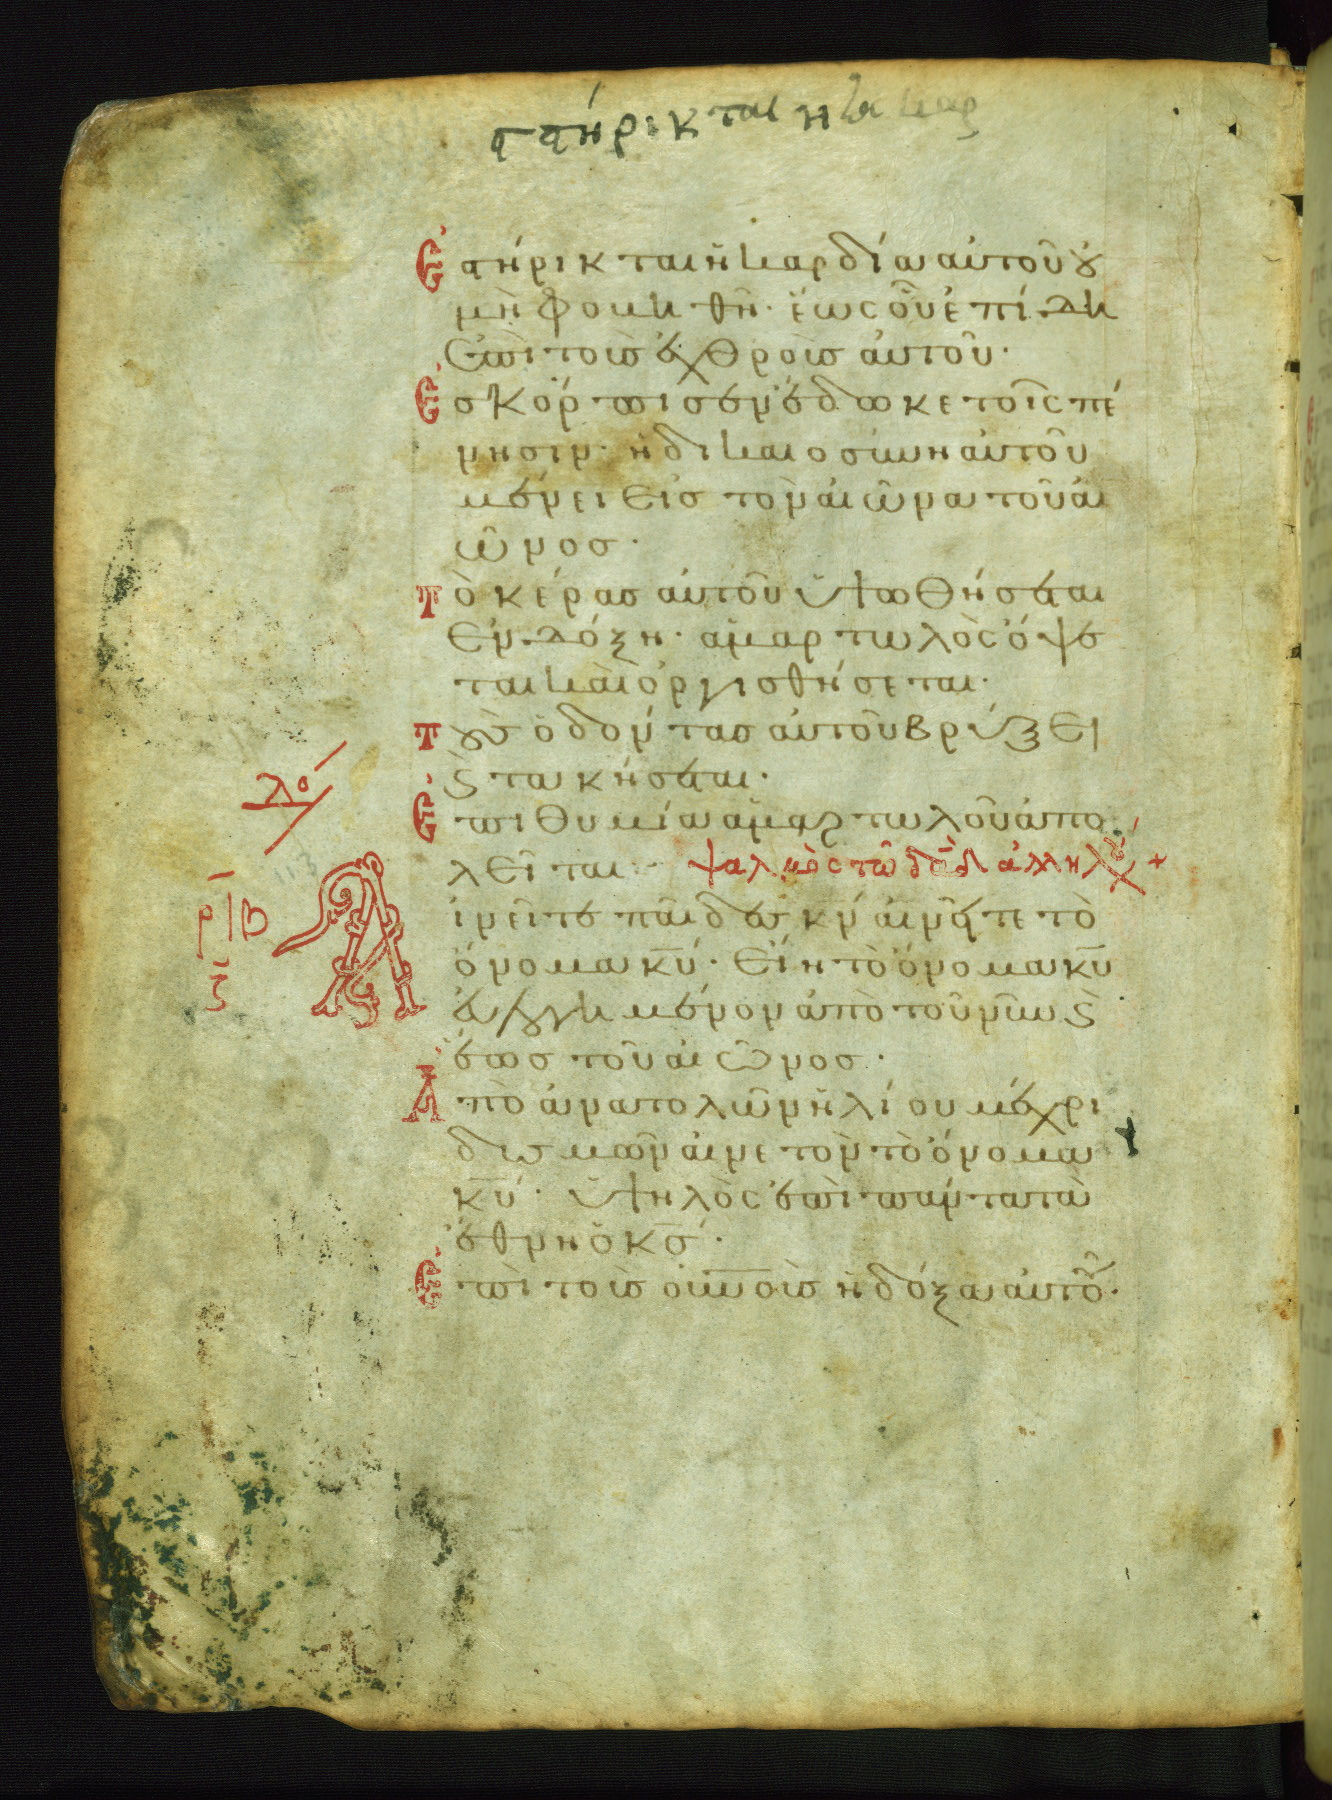 στήρικται η καρ
Ἐστήρικται ἡ καρδία αὐτοῦ οὐ
μὴ φοβηθῆ· ἕως οὗ ἐπίδη
ἐπὶ τοὺς ἐχθροὺς αὐτοῦ·
Ἐσκόρπισεν ἔδωκε τοῖς πέ
νησιν· ἡ δικαιοσύνη αὐτοῦ
μένει εἰς τὸν αἰῶνα τοῦ αἰ
ῶνος·
Τὸ κέρας αὐτοῦ ὑψωθήσεται
ἐν δόξη· ἁμαρτωλὸς ὄψε
ται καὶ ὀργισθήσεται·
Τοὺς ὀδόντας αὐτοῦ βρύξει
ϗ τακήσεται·
Ἐπιθυμία ἁμαρτωλοῦ ἀπο
λεῖται· ψαλμὸς τῶ δᾱδ ἀλληλού +
λό
ρ̄ιβ
ζ̄
Αἰνεῖτε παῖδες κ̄ν αἰνεῖτε τὸ
ὄνομα κ̄υ· Εἴη τὸ ὄνομα κ̄υ
εὐλογημένον ἀπὸ τοῦ νῦν ϗ
ἕως τοῦ αἰῶνος·
Ἀπὸ ἀνατολῶν ἡλίου μέχρι
δυσμῶν αἰνετὸν τὸ ὄνομα
κ̄υ· Ὑψηλὸς ἐπὶ πάντα τὰ
ἔθνη ὁ κ̄ς·
Ἐπὶ τοὺς οὐνοὺς ἡ δόξα αὐτοῦ·